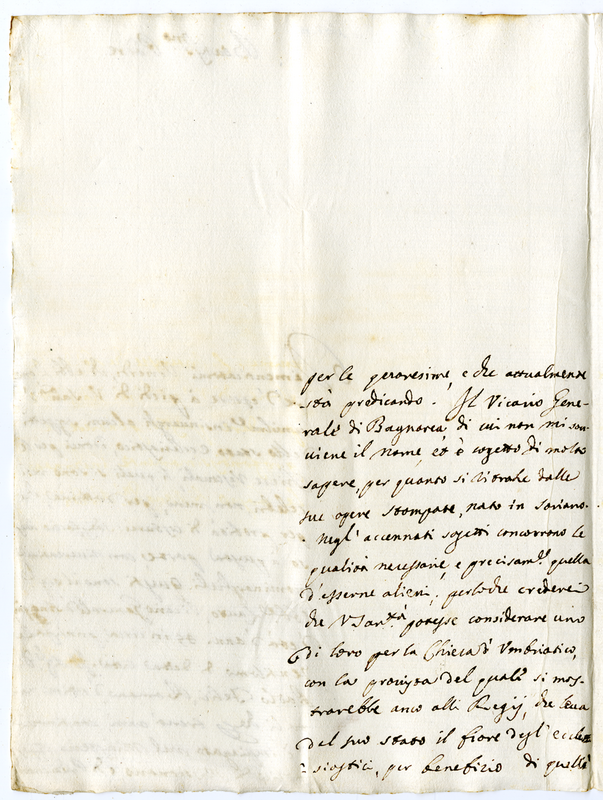 per le peraresime, e che actualmente
stà predicando. Il Vicario Gene-
rale di Bagnarea di cui non mi sou-
uiene il nome, et è sogetto di molto
sapere, per quanto si ritrahe dalle
sue opere stampate, nato in Soriano.
Negl' accennati sogetti concorrono le
qualità necessarie, e precisam.te quella
d'esserne alieni; perloche crederei
che V. San.tà potesse considerare uno
di loro per la Chiesa d'Umbriatico,
con la prouista del quale si mos-
trarebbe anco alli Regij, che leua
dal suo stato il fiore degl' eccle-
siastici, per benefizio di quelle